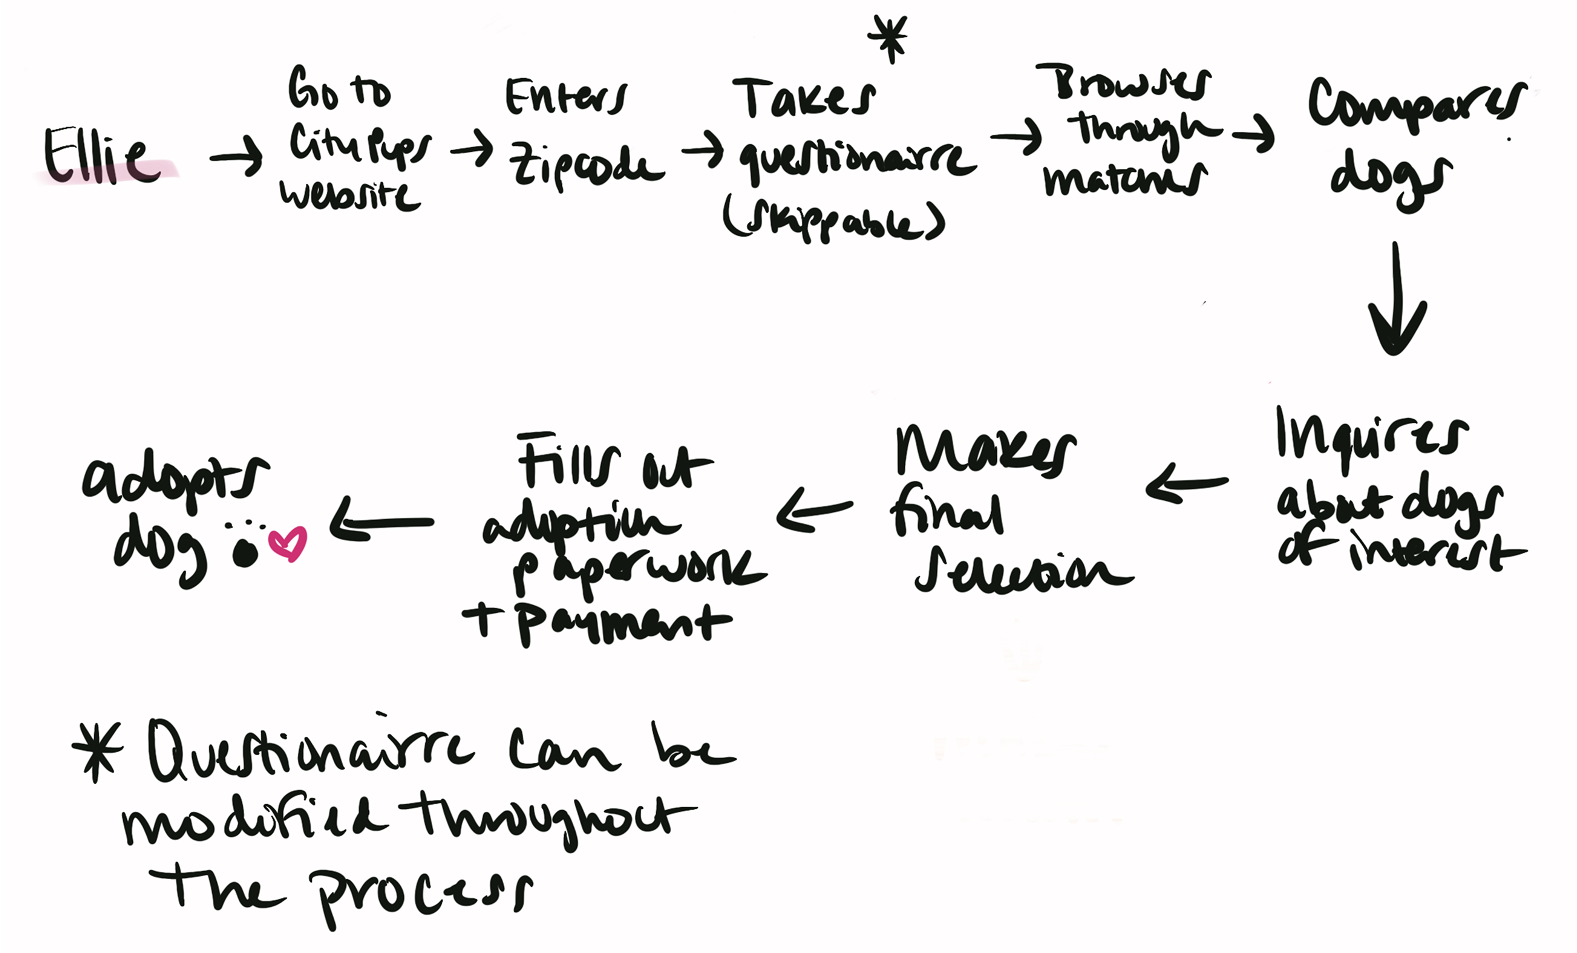 *
Ellie → Go to
City Pups
website → Enters
Zipcode → Takes
questionairre
(skippable) → Browses
through
matches → Compares
dogs
Inquires
about dogs
of interest
Makes
final
selection
Fills out
adoption
paperwork
+ payment
adopts
dog
* Questionairre can be
modified throughout
the process